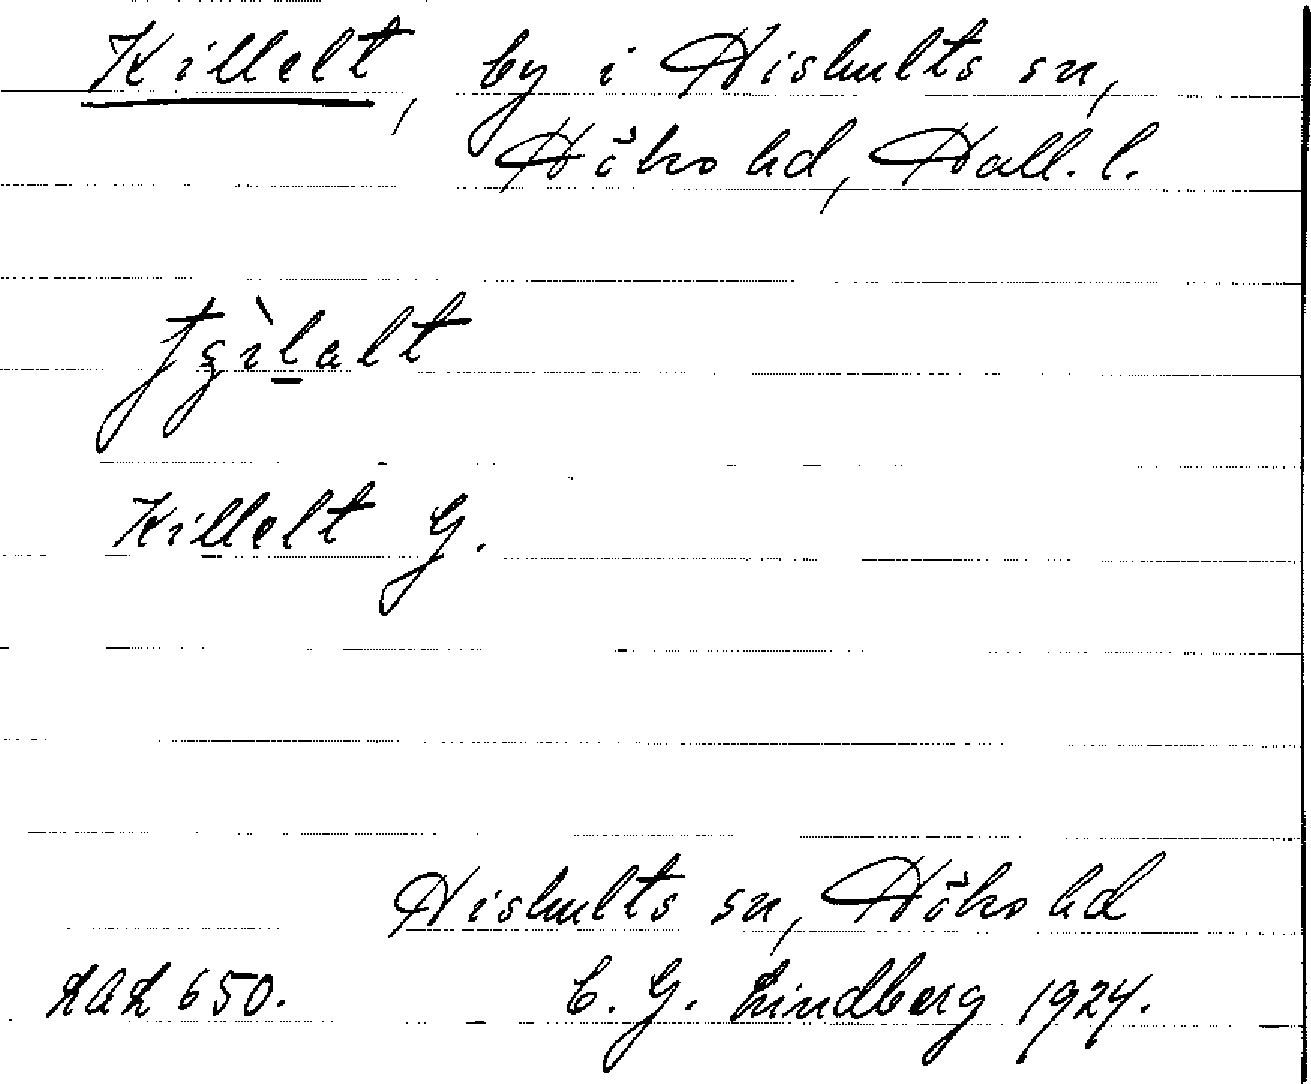 Killelt, by i Hishults sn,
Höks hd, Hall. l.
Killelt G.
Hishults sn, Höks hd
LAL 650. C. G. Lindberg 1924.